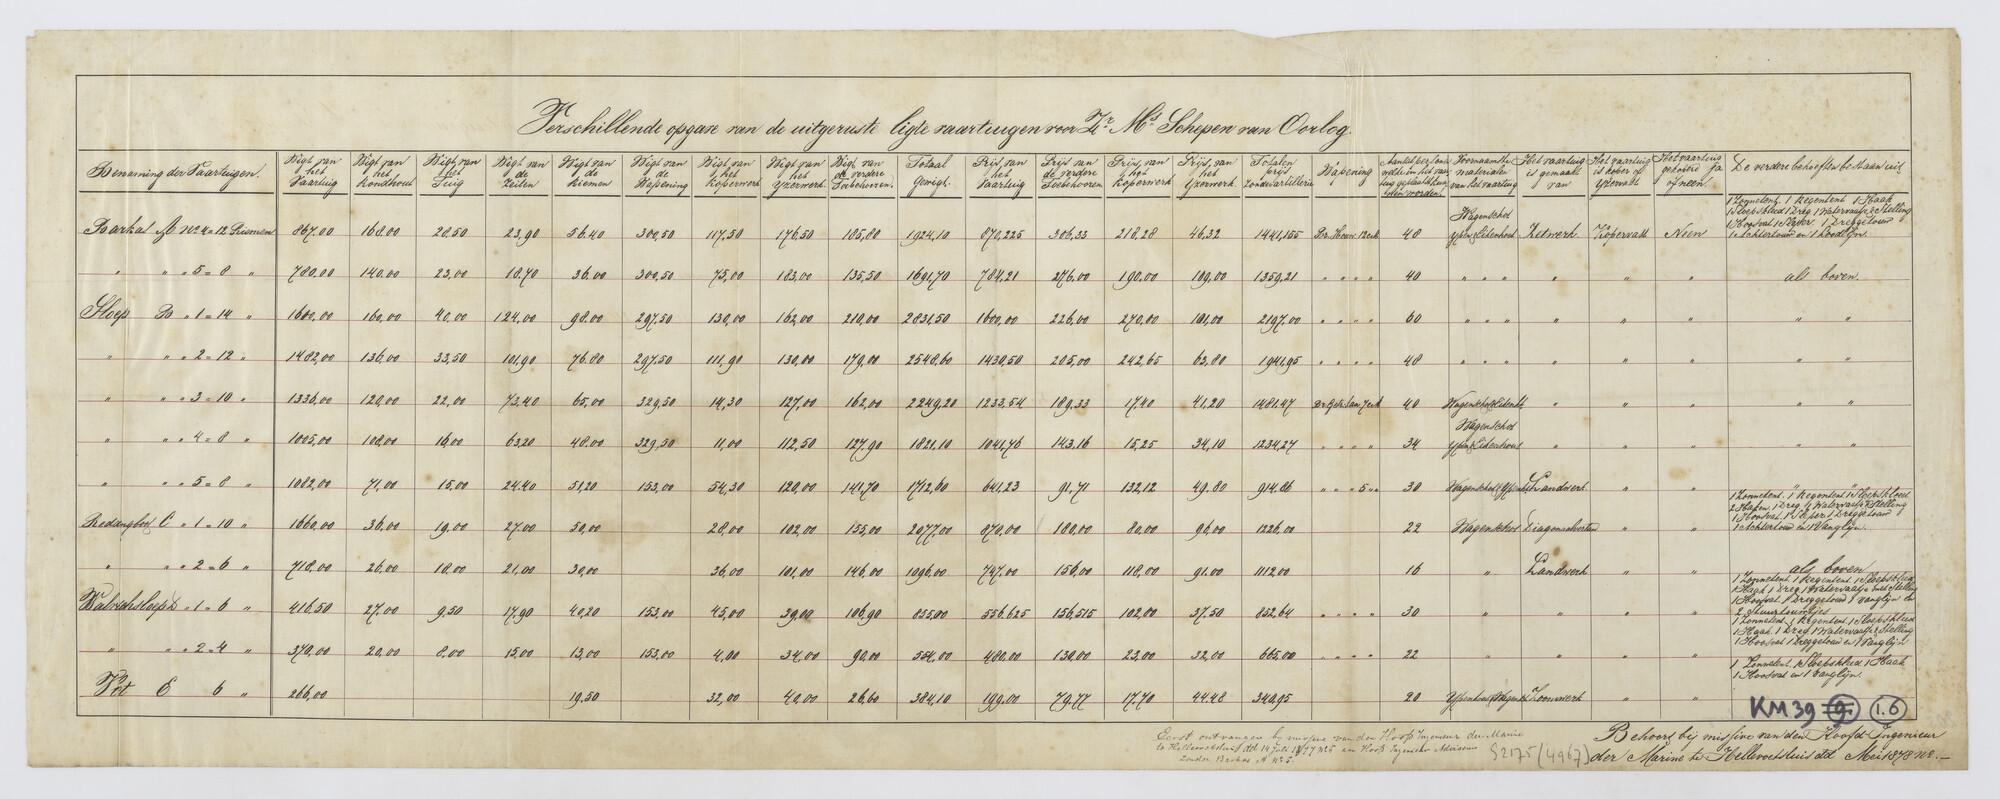 Verschillende opgave van de uitgeruste ligte vaartuigen voor Zr. Ms. Schepen van Oorlog.
Benaming der Vaartuigen. Wigt van het Vaartuig Wigt van het Rondhout Wigt van het Tuig Wigt van de Zeilen Wigt van de Riemen Wigt van de Wapening Wigt van het Koperwerk Wigt van het Yzerwerk Wigt van de verdere Toebehooren. Totaal Gewigt. Prijs van het Vaartuig Prijs van de verdere Toebehooren Prijs van het Koperwerk Prijs van het Yzerwerk. Totalen prijs Zonder artillerie Wapening Aantal personen welke in het vaartuig geplaatst kunnen worden. Voornaamste materialen van het vaartuig Het vaartuig is gemaakt van Het vaartuig is koper of Yzervast Het vaartuig gekoperd ja of neen. De verdere behoeften bestaan uit
1 Zonnetent 1 Regentent 1 Haak
1 Sloepskleed 1 Dreg 1 Watervaatje & Stelling
1 Hoosvat 1 Sleper 1 Dreggetouw
1 Achtertouw en 1 Loodlijn.
Barkas A No 4 = 12 Riemen 867,00 168,00 28,50 23,90 56.40 300,50 117,50 176,50 105,80 1924,10 870,225 306.33 218,28 46,32 1441,155 48 Wagenschot Ypen & Eikenhout Zetwerk Kopervast Neen
" " " 5 = 8 " 780,00 140,00 23,00 18.70 36.00 300,50 75,00 183,00 135,50 1691,70 784,21 276,00 190,00 109,00 1359,21 " " " " 40 " " " " " " als boven.
Sloep B " 1 = 14 " 1600,00 160,00 40,00 124,00 98.00 297.50 130,00 162,00 210,00 2831,50 1600,00 226,00 270,00 101,00 2197.00 " " " " 60 " " " " " " " "
" " " 2 = 12 " 1482,00 136,00 33,50 101,90 76.80 297,50 111,90 130,00 179,00 2548,60 1430,50 205,00 242,65 63,80 1941,95 " " " " 48 " " " " " " " "
" " " 3 = 10 " 1336,00 120,00 22,00 73.40 65,00 329,50 14,30 127,00 162,00 2249,20 1233,54 189,33 17,40 41,20 1481,47 40 Wagenschot & Eikenh " " " " "
" " " 4 = 8 " 1005,00 108,00 16,00 63,20 48.00 329,50 11,00 112,50 127,90 1821,10 1041,76 143,16 15,25 34,10 1234,27 " " " " 34 Wagenschot Ypen & Eikenhout " " " " "
" " " 5 = 8 " 1082,00 71,00 15,00 24.40 51,20 153,00 54,30 120,00 141,70 1712,60 641,23 91,71 132,12 49,80 914,86 " " " 5 " " 30 Landwerk " " " "
1 Zonnetent. 1 Regentent 1 Sloepskleed
2 Haken, 1 Dreg, 1 Watervaatje & Stelling
1 Hoosvat 1 Sleper 1 Dreggetouw
1 Achtertouw en 1 Vanglijn.
Reddingboot C " 1 = 10 " 1660,00 36,00 19,00 27,00 50,00 28,00 102,00 155,00 2077,00 870,00 180,00 80,00 96,00 1226,00 22 Wagenschot Diagonaalverken " "
" " " 2 = 6 " 718,00 26,00 18,00 21,00 30,00 36,00 101,00 146,00 1096,00 747,00 156,00 118,00 91.00 1112,00 16 " Landwerk " " als boven
1 Zonnetent, 1 Regentent 1 Sloepskleed
1 Haak 1 Dreg, 1 Watervaatje met Stelling
1 Hoosvat 1 Dreggetouw 1 Vanglijn en
2 Stuurtouwtjes
Walvischsloep D " 1 = 6 " 416,50 27,00 9,50 17,90 40,20 153,00 45,00 39,00 106,90 855,00 556,625 156,515 102,00 37,50 852,64 " " " " 30 " " " "
1 Zonnetent, 1 Regentent 1 Sloepskleed
1 Haak 1 Dreg 1 Watervaatje & Stelling
1 Hoosvat 1 Dreggetouw en 1 Vanglijn
" " " 2 = 4 " 370,00 20,00 8,00 15,00 13,00 153,00 4,00 34,00 90,00 554,00 480,00 130,00 23,00 32,00 665,00 " " " " 22 " " " "
1 Zonnetent, 1 Sloepskleed, 1 Haak
1 Hoosvat en 1 Vanglijn.
Vlet E 6 " 266,00 19,50 32,00 40,00 26,60 384,10 199,00 79,77 17.70 44.48 340,95 20 Zoomwerk " "
KM 39 9. 1.6
Eerst ontvangen bij missive van den Hoofd Ingenieur der Marine
te Hellevoetsluis dd 14 Juli 1877 No 5 aan Hoofd Ingenieur Adviseur
Zonder Barkas A No 5.
S2175 (4967)
Behoort bij missive van den Hoofd-Ingenieur
der Marine te Hellevoetsluis dd Mei 1878 No. —